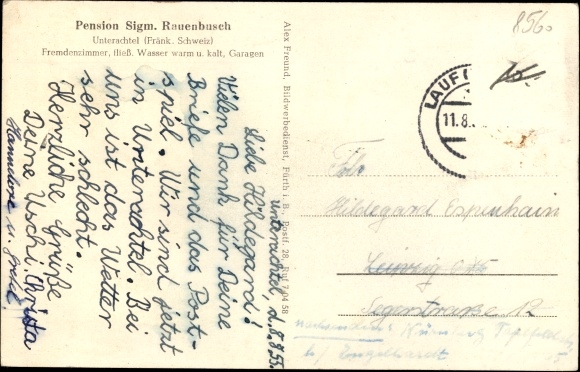 Pension Sigm. Rauenbusch
Unterachtel (Fränk. Schweiz)
Fremdenzimmer, fließ. Wasser warm u. kalt, Garagen
Unterachtel, d. 8.8.55.
Liebe Hildegard!
Vielen Dank für Deine
Briefe und das Post-
spiel. Wir sind jetzt
in Unterachtel. Bei
uns ist das Wetter
sehr schlecht.
Herzliche Grüße
Deine Uschi, Christa
Hannelore u.
Alex Freund, Bildwerbedienst, Fürth i. B., Postf. 28, Ruf 7 04 58
8560
LAUF (
11.8.
Frl.
Hildegard Espenhain
Leipzig
Segerstraße 12
nachsenden: Nürnberg
b/ Engelhardt